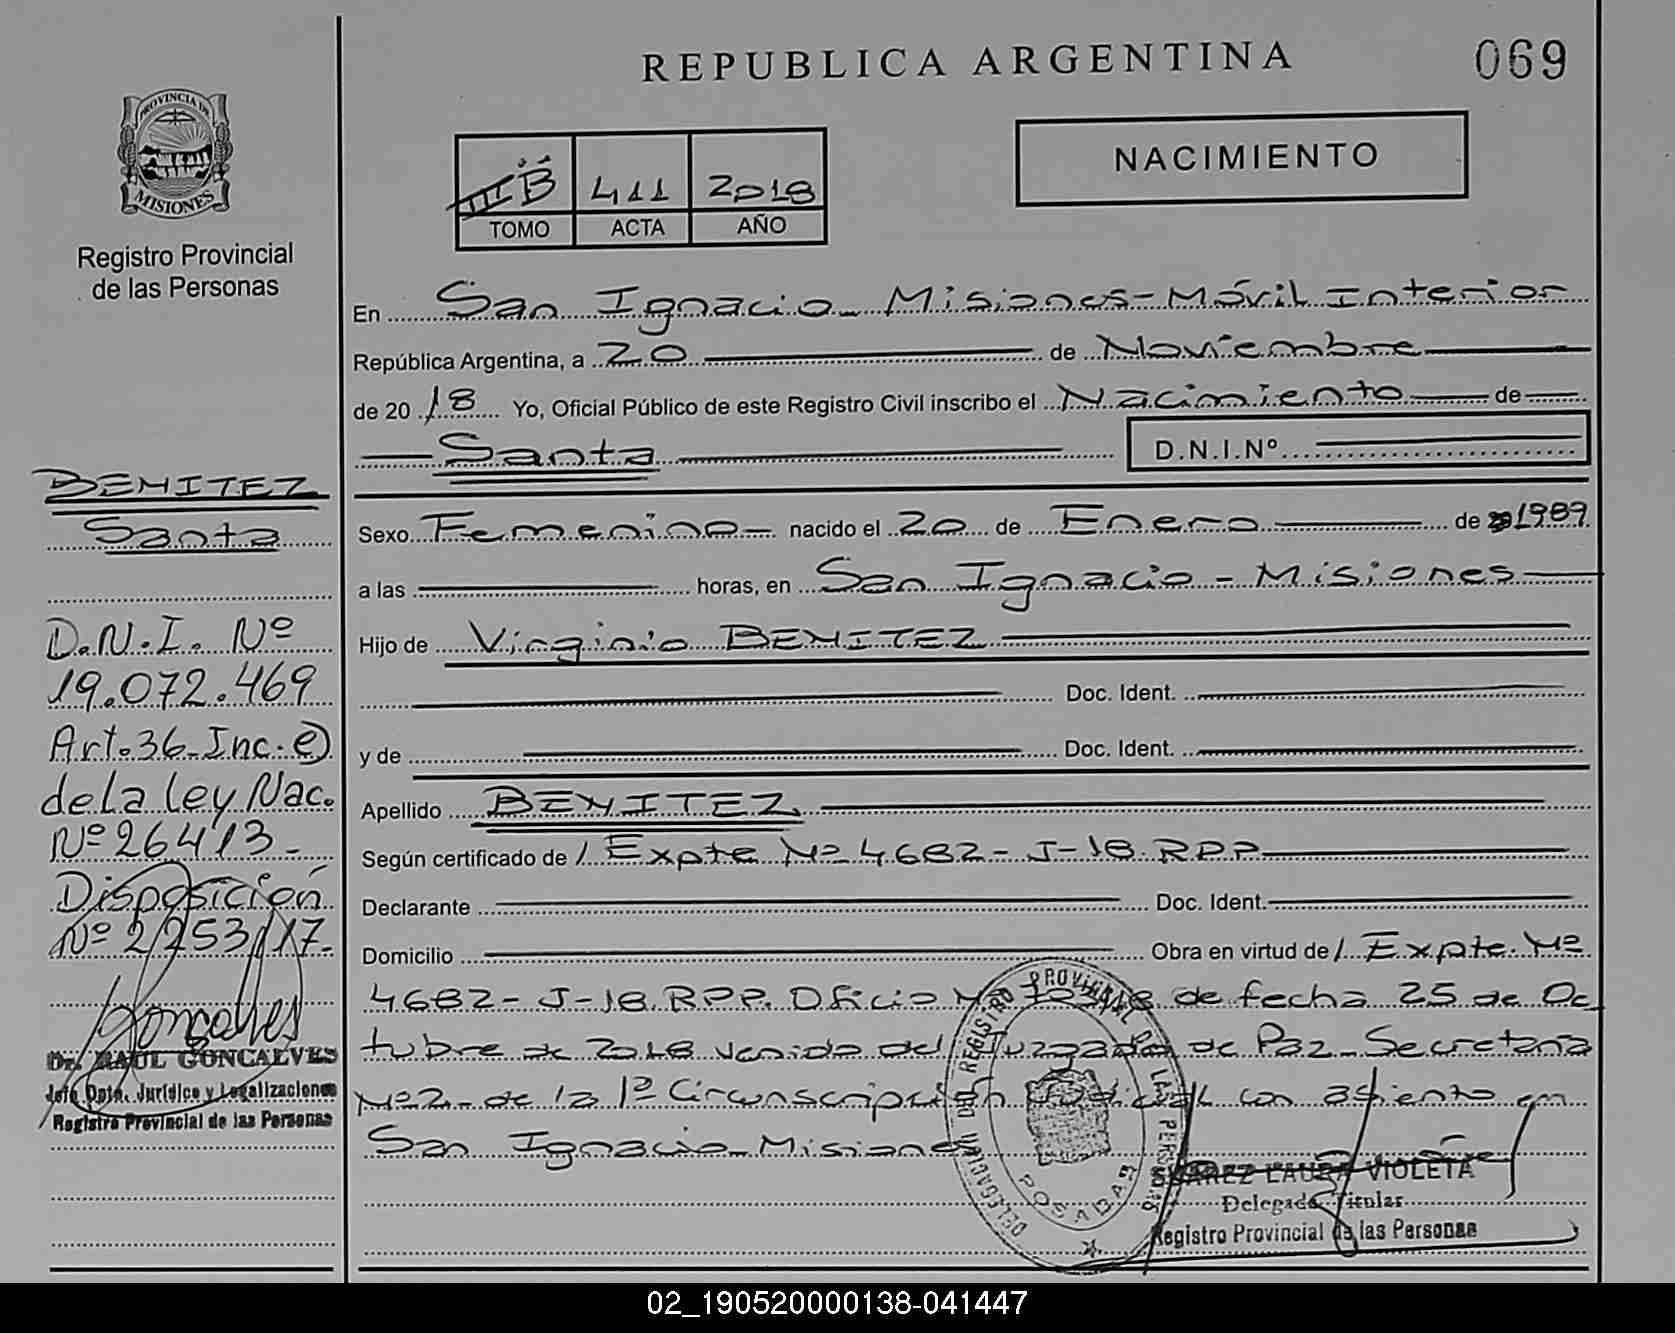 REPUBLICA ARGENTINA
069
PROVINCIA DE
MISIONES
Registro Provincial
de las Personas
III B 411 2018
TOMO ACTA AÑO
NACIMIENTO
En San Ignacio Misiones - Móvil Interior
República Argentina, a 20 de Noviembre
de 2018 Yo, Oficial Público de este Registro Civil inscribo el Nacimiento de
Santa D.N.I.Nº
Sexo Femenino nacido el 20 de Enero de 1989
a las horas, en San Ignacio - Misiones
Hijo de Virginio BENITEZ
Doc. Ident.
y de Doc. Ident.
Apellido BENITEZ
Según certificado de / Expte Nº 4682-J-18.RPP
Declarante Doc. Ident.
Domicilio Obra en virtud de / Expte. Nº
4682-J-18.RPP. Oficio de fecha 25 de Oc
tubre de 2018 venido del Juzgado de Paz - Secretaria
Nº2 - de la 1ª Circunscripción Judicial con asiento en
San Ignacio - Misiones
BENITEZ
Santa
D.N.I. Nº
19.072.469
Art. 36 - Inc. e)
de la Ley Nac.
Nº 26413 -
Disposición
Nº 2253/17.
Gonçalves
Dr. RAUL GONCALVES
Jefe Dpto. Jurídico y Legalizaciones
Registro Provincial de las Personas
DELEGACION DEL REGISTRO PROVINCIAL DE LAS PERSONAS
POSADAS
SUAREZ LAURA VIOLETA
Delegada Titular
Registro Provincial de las Personas
02_190520000138-041447